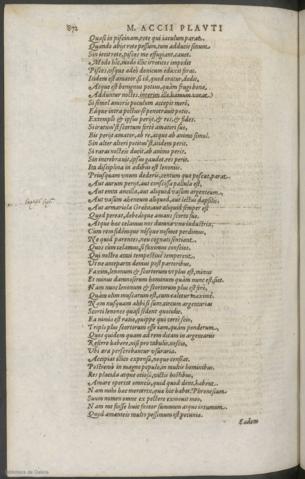 872 M. ACCII PLAVTI
Quasi in piscinam, rete qui iaculum parat.
Quando abijt rete pessum, tum adducit sinum.
Sin iecit rete, pisces ne effugiant, cauet.
Modo huc, modo illuc irretitos impedit
Pisces, usque adeò donicum eduxit foras.
Itidem est amator, si id, quod oratur, dedit,
Atque est benignus potius, quàm frugi bonæ,
Adduntur noctes, interim ille hamum uorat.
Si semel amoris poculum accepit meri,
Eaque intra pectus se penetrauit potio,
Extemplò & ipsus perijt, & res, & fides.
Si iratum scortum fortè amatori suo,
Bis perit amator, ab re, atque ab animo simul.
Sin alter alteri potius est, itidem perit.
Si raras noctes ducit, ab animo perit,
Sin increbrauit, ipsus gaudet, res perit.
Ita disciplina in ædibus est lenonijs.
Priusquam unum dederis, centum quæ poscat, parat.
Aut aurum perijt, aut conscissa pallula est,
Aut emta ancilla, aut aliquod uasum argenteum,
Aut uasum ahenum aliquod, aut lectus
Aut armariola Græca, aut aliquid semper est
Quod pereat, debeatque amans scorto suo.
Atque hæc celamus nos damna una industria,
Cum rem fidemque nósque nosmet perdimus,
Ne quid parentes, neu cognati sentiant.
Quos cum celamus, si faximus conscios,
Qui nostræ ætati tempestiuè temperent,
Vt ne anteparta demus postpartoribus,
Faxim, lenonum & scortorum ut plus est, minus
Et minus damnosorum hominum quàm nunc est, siet.
Nam nunc lenonum & scortorum plus est ferè,
Quàm olim muscarum est, cum caletur maximè.
Nam nusquam alibi si sunt, circum argentarias
Scorti lenones quasi sedent quotidie.
Ea nimia est ratio, quippe qui certò scio,
Triplò plus scortorum esse iam, quàm ponderum.
Quos quidem quam ad rem dicam in argentarijs
Referre habere, nisi pro tabulis, nescio,
Vbi æra perscribantur usuraria.
Accepta dico expensa, nequis censeat.
Postremò in magno populo, in multis hominibus,
Re placida atque otiosa, uictis hostibus,
Amare oportet omneis, quid quod dent, habent.
Nam mihi hæc meretrix, quæ hîc habet, Phronesium
Suum nomen omne ex pectore exmouit meo,
Nam me fuisse huic fateor summum atque intumum.
Quod amanteis multò pessimum est pecuniæ.
Eadem